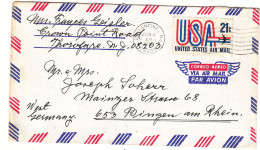 Mrs. Frances Geipler
Crown Point Road
Thorofare N.J. 08203
USA 21¢
UNITED STATES AIR MAIL
CORREO AEREO
VIA AIR MAIL
PAR AVION
Mr. & Mrs.
Joseph Scherr
Mainzer Strasse 68
653 Bingen am Rhein.
West
Germany.